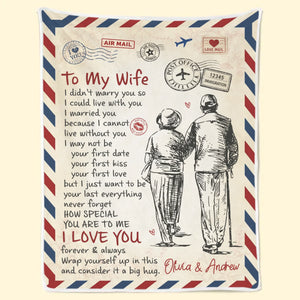 AIR MAIL
LOVE MAIL
POST OFFICE
12345
To My Wife
I didn't marry you so
I could live with you
I married you
because I cannot
live without you
I may not be
your first date
your first kiss
your first love
but I just want to be
your last everything
never forget
HOW SPECIAL
YOU ARE TO ME
I LOVE YOU
forever & always
Wrap yourself up in this
and consider it a big hug.
Olivia & Andrew